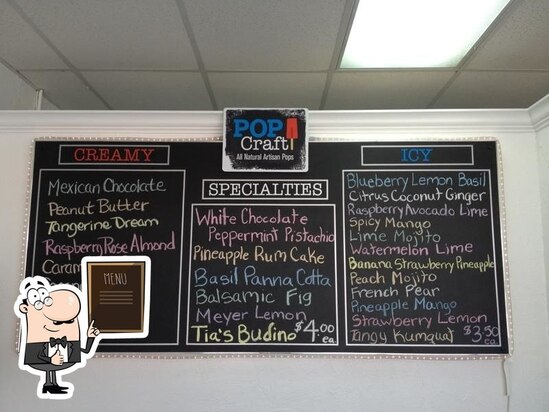 POP
Craft
All Natural Artisan Pops
CREAMY
Mexican Chocolate
Peanut Butter
Tangerine Dream
Raspberry Rose Almond
Caram
SPECIALTIES
White Chocolate
Peppermint Pistachio
Pineapple Rum Cake
Basil Panna Cotta
Balsamic Fig
Meyer Lemon
Tia's Budino $4.00
ea.
ICY
Blueberry Lemon Basil
Citrus Coconut Ginger
Raspberry Avocado Lime
Spicy Mango
Lime Mojito
Watermelon Lime
Banana Strawberry Pineapple
Peach Mojito
French Pear
Pineapple Mango
Strawberry Lemon
Tangy Kumquat $3.50
ea.
MENU